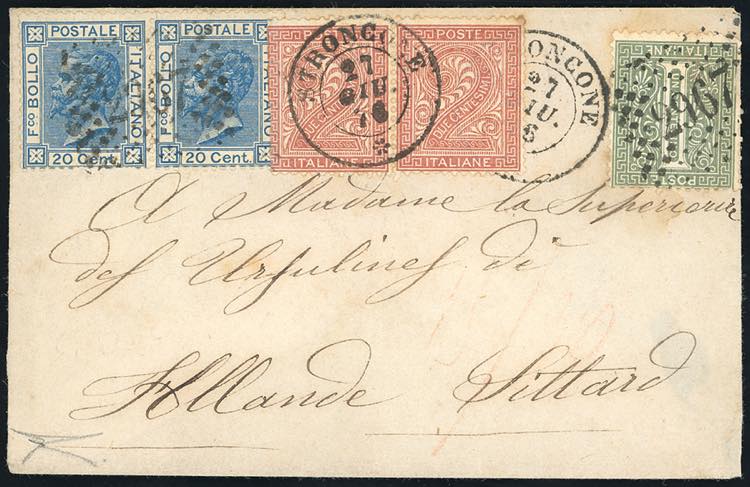 POSTALE POSTALE
Fco BOLLO ITALIANO Fco BOLLO ITALIANO
20 Cent. 20 Cent.
POSTE POSTE
DUE CENTESIMI DUE CENTESIMI
2 2
ITALIANE ITALIANE
STRONCONE
27
GIU.
76
RONCONE
27
IU.
6
ITALIANE
POSTE
A Madame la Superieure
des Ursulines de
Hollande Sittard